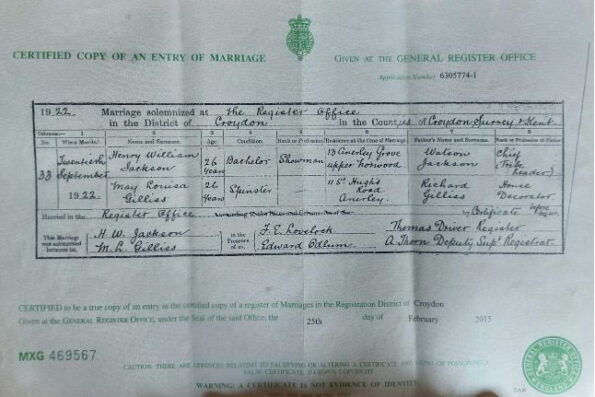 CERTIFIED COPY OF AN ENTRY OF MARRIAGE
GIVEN AT THE GENERAL REGISTER OFFICE
Application Number 6305774-1
1922. Marriage solemnized at The Register Office
in the District of Croydon in the Counties of Croydon, Surrey & Kent
Columns:— 1 2 3 4 5 6 7 8
No. When Married Name and Surname. Age Condition. Rank or Profession Residence at the time of Marriage Father's Name and Surname. Rank or Profession of Father
33 Twentieth September 1922
Henry William Jackson 26 years Bachelor Showman 13 Anerley Grove Upper Norwood Watson Jackson Chief (Tribe Leader)
May Louisa Gilliss 26 years Spinster — 115 St Hugh's Road Anerley. Richard Gilliss House Decorator
Married in the Register Office by Certificate before me,
This Marriage was solemnized between us, H. W. Jackson in the Presence of us, F. E. Lovelock Thomas Driver Registrar
M. L. Gilliss Edward Odlum A Thorn Deputy Sup' Registrar
CERTIFIED to be a true copy of an entry in the certified copy of a register of Marriages in the Registration District of Croydon
Given at the GENERAL REGISTER OFFICE, under the Seal of the said Office, the 25th day of February 2015
MXG 469567
CAUTION: THERE ARE OFFENCES RELATING TO FALSIFYING OR ALTERING A CERTIFICATE AND USING OR POSSESSING A
FALSE CERTIFICATE © CROWN COPYRIGHT
WARNING: A CERTIFICATE IS NOT EVIDENCE OF IDENTITY.